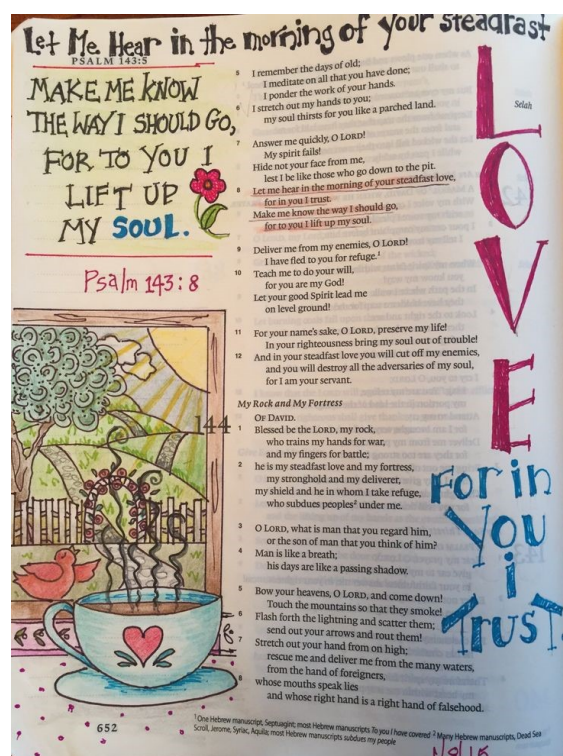 Let Me Hear in the morning of your steadfast
PSALM 143:5
MAKE ME KNOW
THE WAY I SHOULD GO,
FOR TO YOU I
LIFT UP
MY SOUL.
Psalm 143:8
5 I remember the days of old;
I meditate on all that you have done;
I ponder the work of your hands.
6 I stretch out my hands to you;
my soul thirsts for you like a parched land.
Selah
7 Answer me quickly, O LORD!
My spirit fails!
Hide not your face from me,
lest I be like those who go down to the pit.
8 Let me hear in the morning of your steadfast love,
for in you I trust.
Make me know the way I should go,
for to you I lift up my soul.
9 Deliver me from my enemies, O LORD!
I have fled to you for refuge.¹
10 Teach me to do your will,
for you are my God!
Let your good Spirit lead me
on level ground!
11 For your name's sake, O LORD, preserve my life!
In your righteousness bring my soul out of trouble!
12 And in your steadfast love you will cut off my enemies,
and you will destroy all the adversaries of my soul,
for I am your servant.
My Rock and My Fortress
144
OF DAVID.
1 Blessed be the LORD, my rock,
who trains my hands for war,
and my fingers for battle;
2 he is my steadfast love and my fortress,
my stronghold and my deliverer,
my shield and he in whom I take refuge,
who subdues peoples² under me.
3 O LORD, what is man that you regard him,
or the son of man that you think of him?
4 Man is like a breath;
his days are like a passing shadow.
5 Bow your heavens, O LORD, and come down!
Touch the mountains so that they smoke!
6 Flash forth the lightning and scatter them;
send out your arrows and rout them!
7 Stretch out your hand from on high;
rescue me and deliver me from the many waters,
from the hand of foreigners,
8 whose mouths speak lies
and whose right hand is a right hand of falsehood.
LOVE
For in
You
i
Trust
652
¹ One Hebrew manuscript, Septuagint; most Hebrew manuscripts To you I have covered ² Many Hebrew manuscripts, Dead Sea
Scroll, Jerome, Syriac, Aquila; most Hebrew manuscripts subdues my people